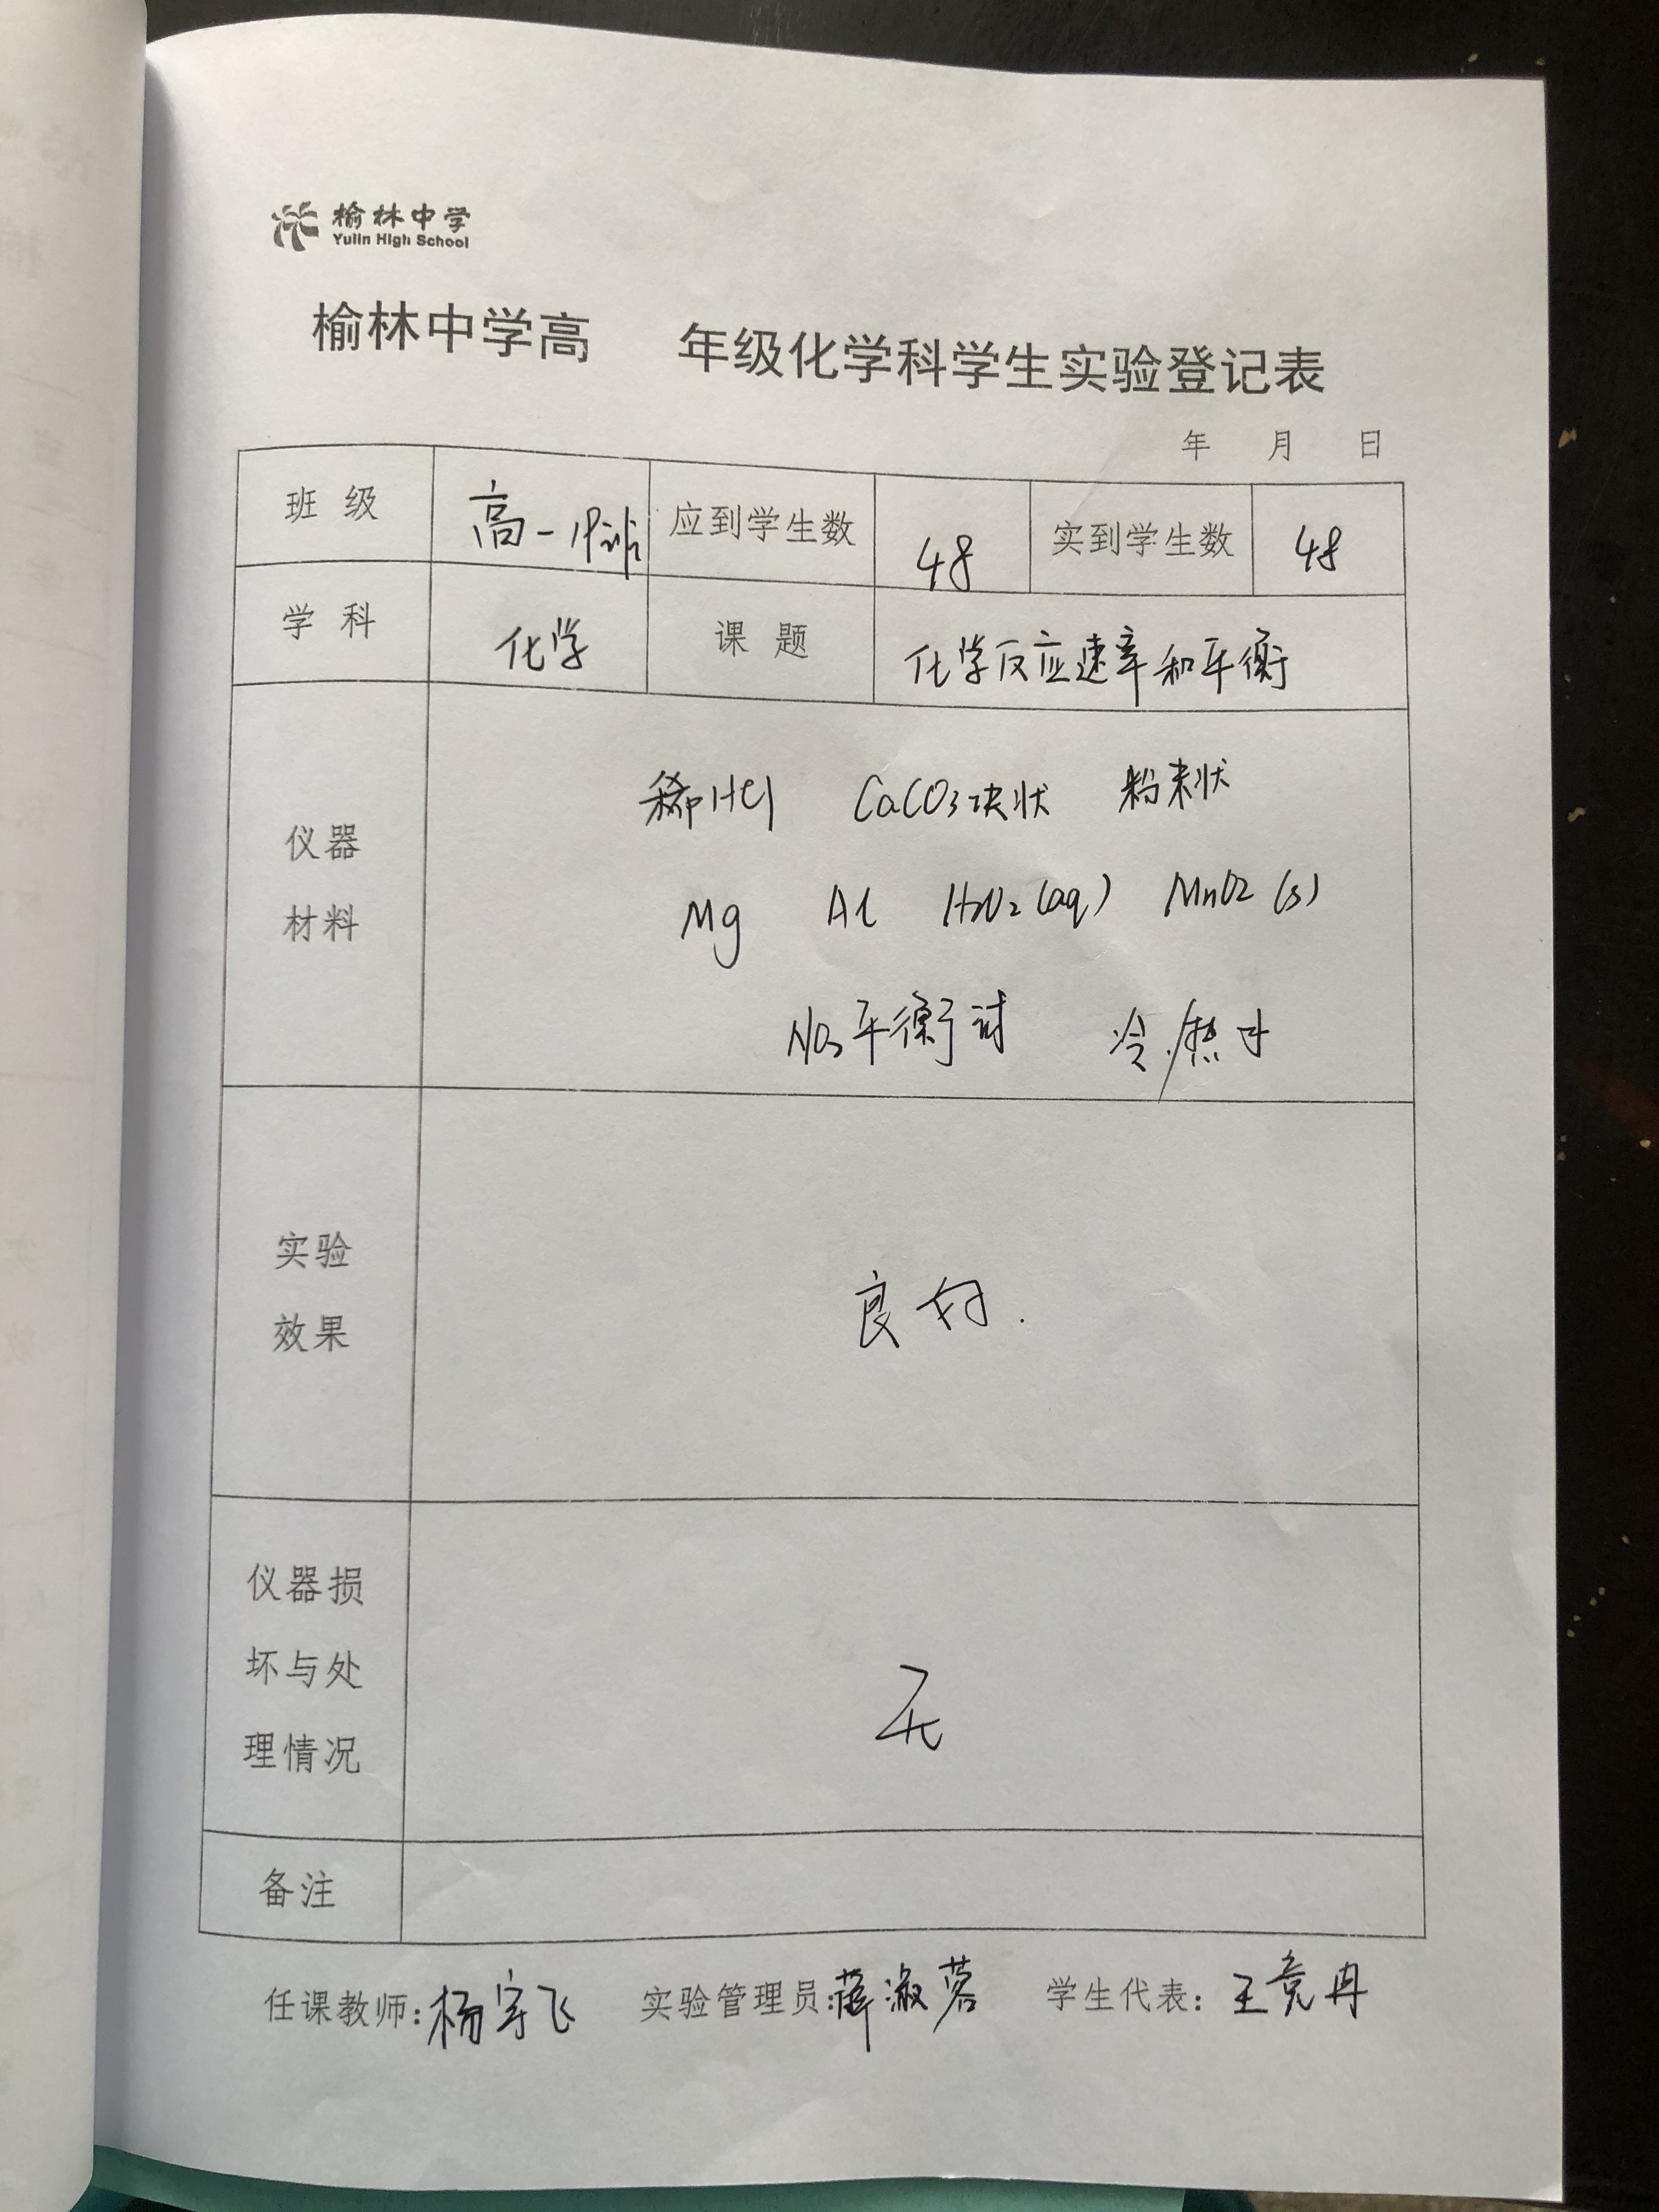 榆林中学
Yulin High School
榆林中学高 年级化学科学生实验登记表
年 月 日
班 级 高一 应到学生数 48 实到学生数 48
学 科 化学 课 题 化学反应速率和平衡
仪器
材料
稀HCl CaCO3块状 粉末状
Mg Al H2O2(aq) MnO2(s)
平衡 冷/热水
实验
效果
良好.
仪器损
坏与处
理情况
无
备注
任课教师:杨宇飞 实验管理员:薛淑蓉 学生代表:王竞冉